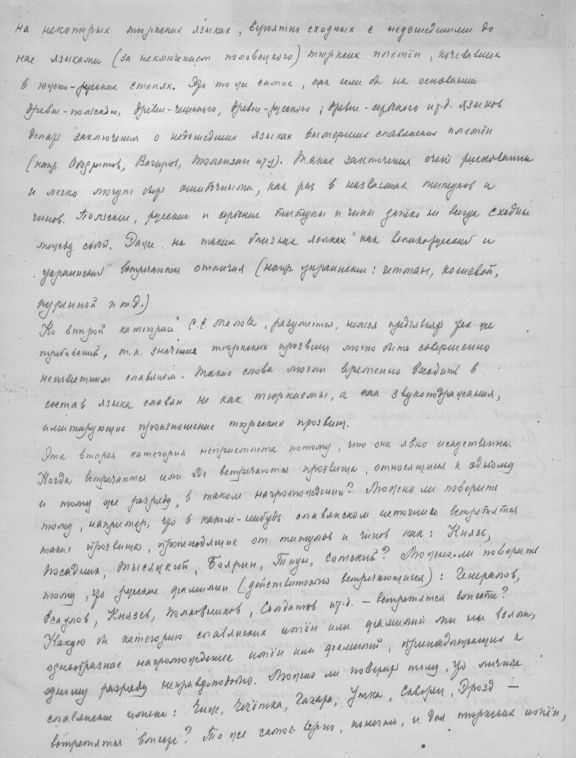 на некоторых тюркских языках, вероятно сходных с недошедшими до
нас языками (за исключением половецкого) тюркских племён, кочевавших
в южно-русских степях. Это то же самое, как если бы на основании
древне-польского, древне-чешского, древне-русского, древне-сербского и т.д. языков
делать заключения о недошедших языках вымерших славянских племён
(напр. Ободритов, Вагиров, и т.д). Такие заключения очень рискованны
и легко могут быть ошибочными, как раз в названиях титулов и
чинов. Польские, русские и сербские титулы и чины далеко не всегда сходны
между собой. Даже на таких близких языках как великорусский и
украинский встречаются отличия (напр. украинские: гетман, кошевой,
куренной и т.д.)
Ко второй категории С.С. Малова, разумеется, нельзя предъявлять тех же
требований, т.к. значения тюркских прозвищ могло быть совершенно
неизвестным славянам. Такие слова могли временно входить в
состав языка славян не как тюркизмы, а как звукоподражания,
имитирующие произношение тюркских прозвищ.
Эта вторая категория неприемлема потому, что она явно искусственна.
Когда встречаются или где встречаются прозвища, относящиеся к одному
и тому же разряду, в таком нагромождении? Можно ли поверить
тому, например, что в каком-нибудь славянском источнике встретятся
такие прозвища, происходящие от титулов и чинов как: Князь,
Посадник, Тысяцкий, Боярин, Тиун, Сотский? Можно ли поверить
тому, что русские фамилии (действительно встречающиеся): Генералов,
Есаулов, Князев, Полковников, Солдатов и т.д. – встретятся вместе?
Какую бы категорию славянских имён или фамилий мы ни взяли,
однообразное нагромождение имён или фамилий, принадлежащих к
одному разряду неправдоподобно. Можно ли поверить тому, что личные
славянские имена: Чиж, Чечётка, Гагара, Утка, Снегирь, Дрозд –
встретятся вместе? То же самое верно, конечно, и для тюркских имён,